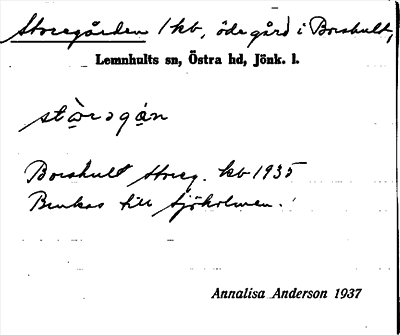 Storegården 1 kb, ödegård i Boashult,
Lemnhults sn, Östra hd, Jönk. l.
stòragạn
Boashult Storeg. kb 1935
Brukas till Sjöholmen.
Annalisa Anderson 1937